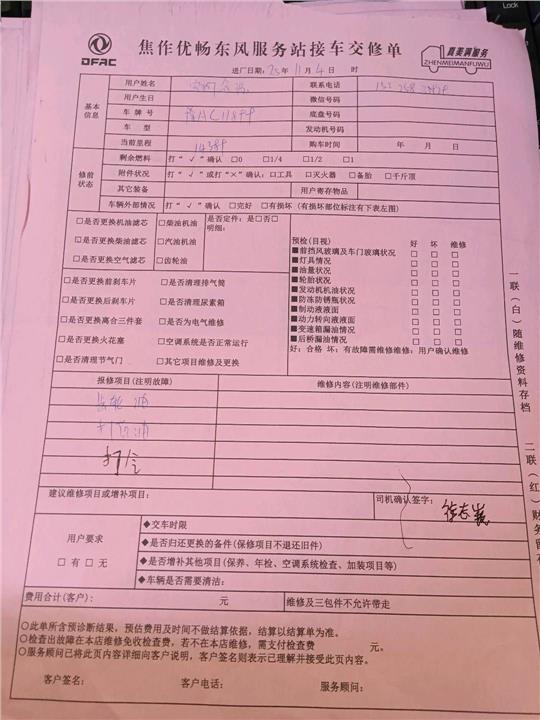 DFAC
焦作优畅东风服务站接车交修单
真美满服务
ZHENMEIMANFUWU
进厂日期：25年11月4日 时
基本信息
用户姓名 联系电话
用户生日 微信号码
车牌号 豫AC118 底盘号码
车型 发动机号码
当前里程 购车时间 年 月 日
修前状态
剩余燃料 打“√”确认 □0 □1/4 □1/2 □1
附件状况 打“√”或打“×”确认：□工具 □灭火器 □备胎 □千斤顶
其它装备 用户寄存物品
车辆外部情况 打“√”确认 □完好 □有损坏（有损坏部位标注有下表左图）
□是否更换机油滤芯 □柴油机油 是否定件：是□否□
□是否更换柴油滤芯 □汽油机油 明细：
□是否更换空气滤芯 □齿轮油
□是否更换前刹车片 □是否清理排气筒
□是否更换后刹车片 □是否清理尿素箱
□是否更换离合三件套 □是否为电气维修
□是否更换火花塞 □空调系统是否正常运行
□是否清理节气门 □其它项目维修及更换
预检(目视) 好 坏 维修
■前挡风玻璃及车门玻璃状况 □ □ □
■灯具情况 □ □ □
■油量状况 □ □ □
■轮胎状况 □ □ □
■发动机机油状况 □ □ □
■防冻防锈瓶状况 □ □ □
■制动液液面 □ □ □
■动力转向液液面 □ □ □
■变速箱漏油情况 □ □ □
■后桥漏油情况 □ □ □
好：合格 坏：有故障需维修维修：用户确认维修
报修项目(注明故障) 维修内容(注明维修部件)
齿轮油
打黄油
建议维修项目或增补项目：
司机确认签字：
用户要求
□有□无
◆交车时限
◆是否归还更换的备件(保修项目不退还旧件)
◆是否增补其他项目(保养、年检、空调系统检查、加装项目等)
◆车辆是否需要清洁：
费用合计(客户)： 元 维修及三包件不允许带走
○此单所含预诊断结果，预估费用及时间不做结算依据，结算以结算单为准。
○检查出故障在本店维修免收检查费，若不在本店维修，需支付检查费 元。
○服务顾问已将此页内容详细向客户说明，客户签名则表示已理解并接受此页内容。
客户签名： 客户电话： 服务顾问：
一联（白）随维修资料存档
二联（红）财务